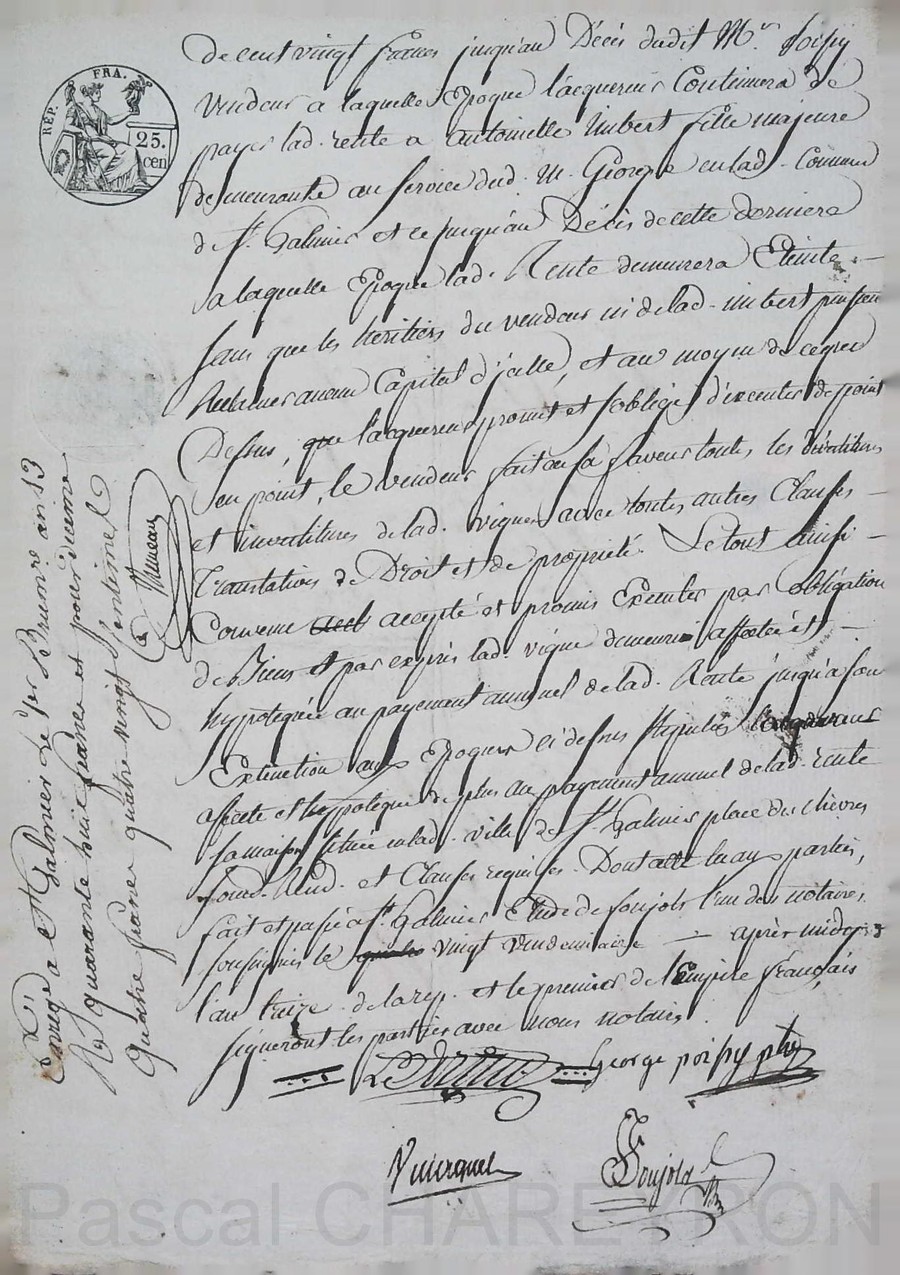 RÉP. FRA.
25.
cen
de cent vingt francs jusqu'au Décès dudit Mr. poissy
vendeur a laquelle Epoque l'acquereur Continuera de
payer lad. rente a antoinette imbert fille majeure
demeurante au service dud. M. George en lad. Commune
de St. Galmier et ce jusqu'au Décès de cette derniere
a laquelle Epoque lad. Rente demeurera Eteinte
sans que les heritiers du vendeur ni de lad. imbert puissent
Reclamer aucun Capital d'icelle, et au moyen de ce que
Dessus, que l'acquereur promet et s'oblige d'executer de point
en point, le vendeur fait en sa faveur toutes les devetitures
et investitures de lad. vigne avec toutes autres Clauses
translatives de Droit et de proprieté. Le tout ainsi
Convenu accepté et promis Executer par obligation
de Biens et par exprès lad. vigne demeure affectée et
hypotequée au payement annuel de lad. Rente jusqu'a son
Extinction aux Epoques ci dessus stipulées l'acquereur
affecte et hypoteque de plus au payement annuel de lad. rente
sa maison située en lad. ville de St. Galmier place des chevres
soum. Rend. et Clauses requises. Dont acte lu aux parties,
fait et passé a St. Galmier Etude de soujols l'un des notaires
soussignés le vingt vendemiaire après midy
l'an treize de la rep. et le premier de l'Empire français
signeront les parties avec nous notaires.
George poissy ptre
Soujols
Enregé a St Galmier Le 1er Brumre an 13
Rç quarante huit francs et pour dixième
Quatre francs quatre vingt Centimes
Pascal CHAREYRON